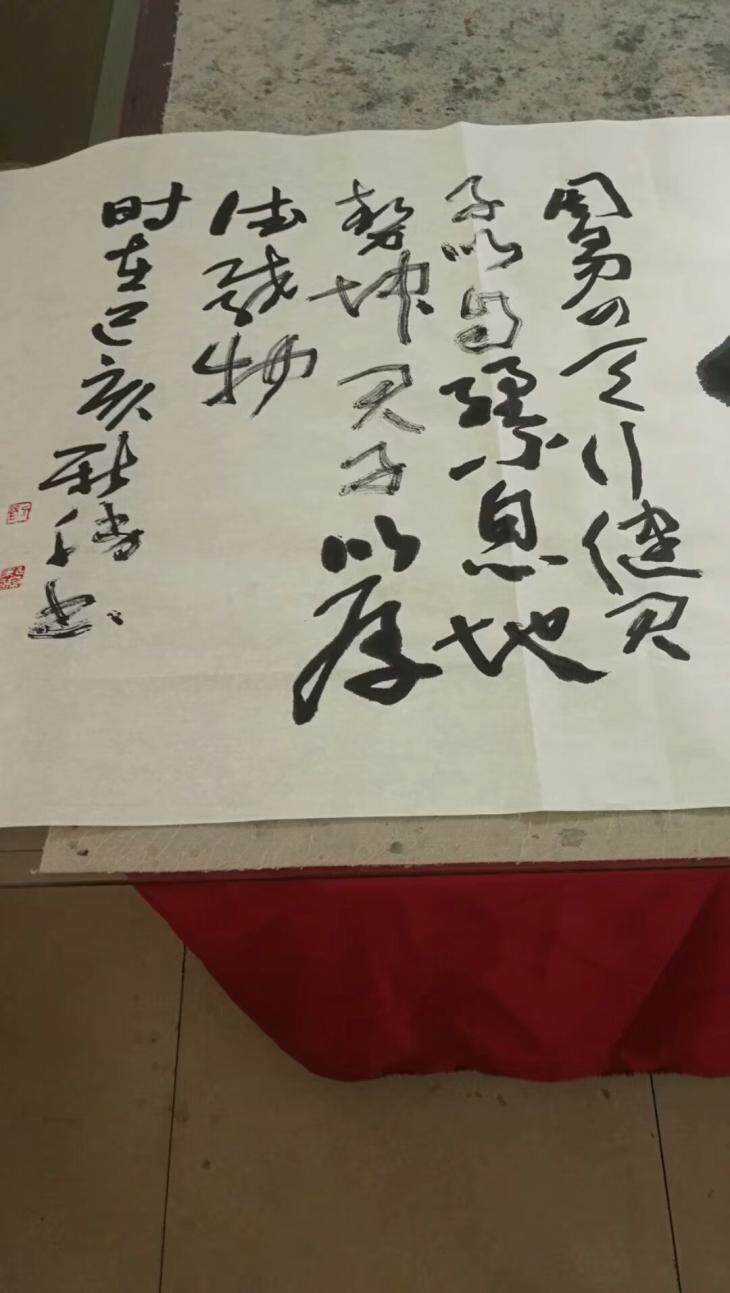 周易曰天行健君
子以自强不息地
势坤君子以厚
德载物
时在己亥秋
书